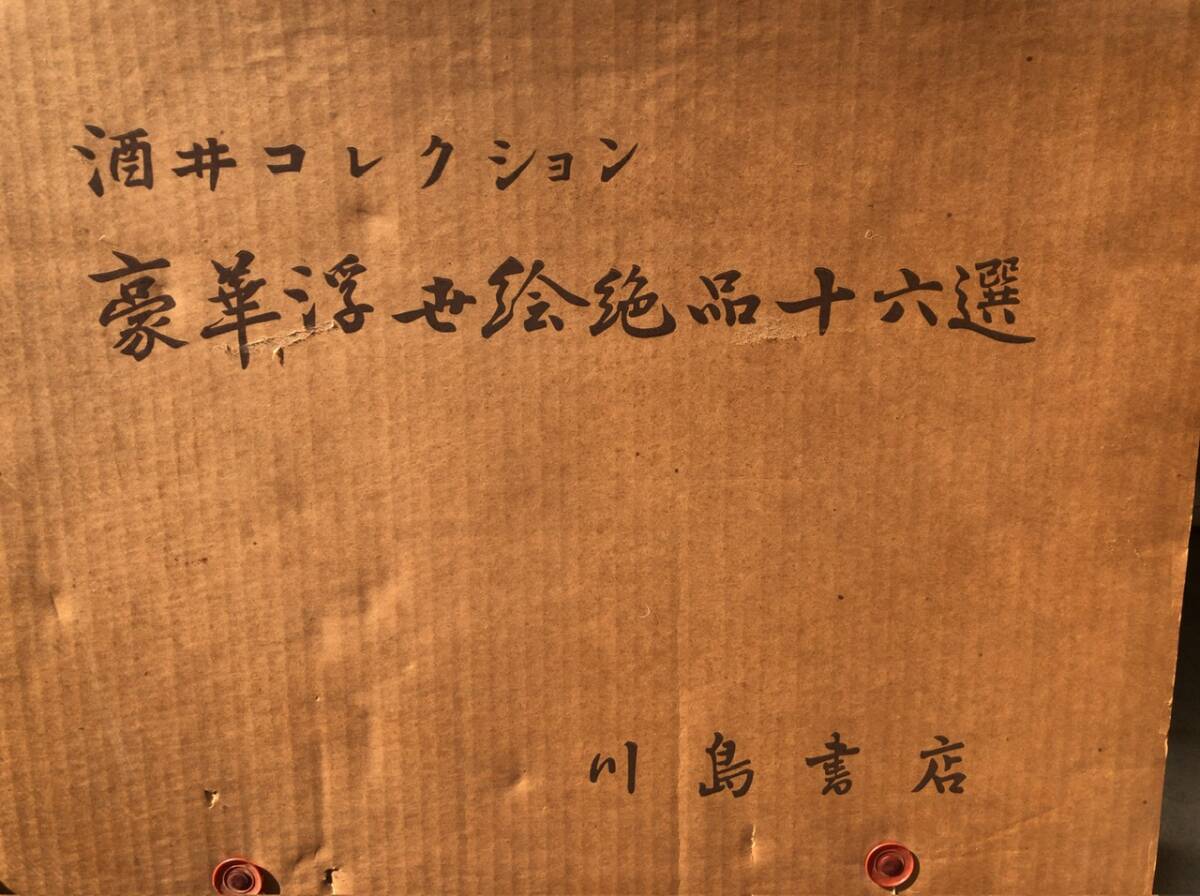 酒井コレクション
豪華浮世絵絶品十六選
川島書店